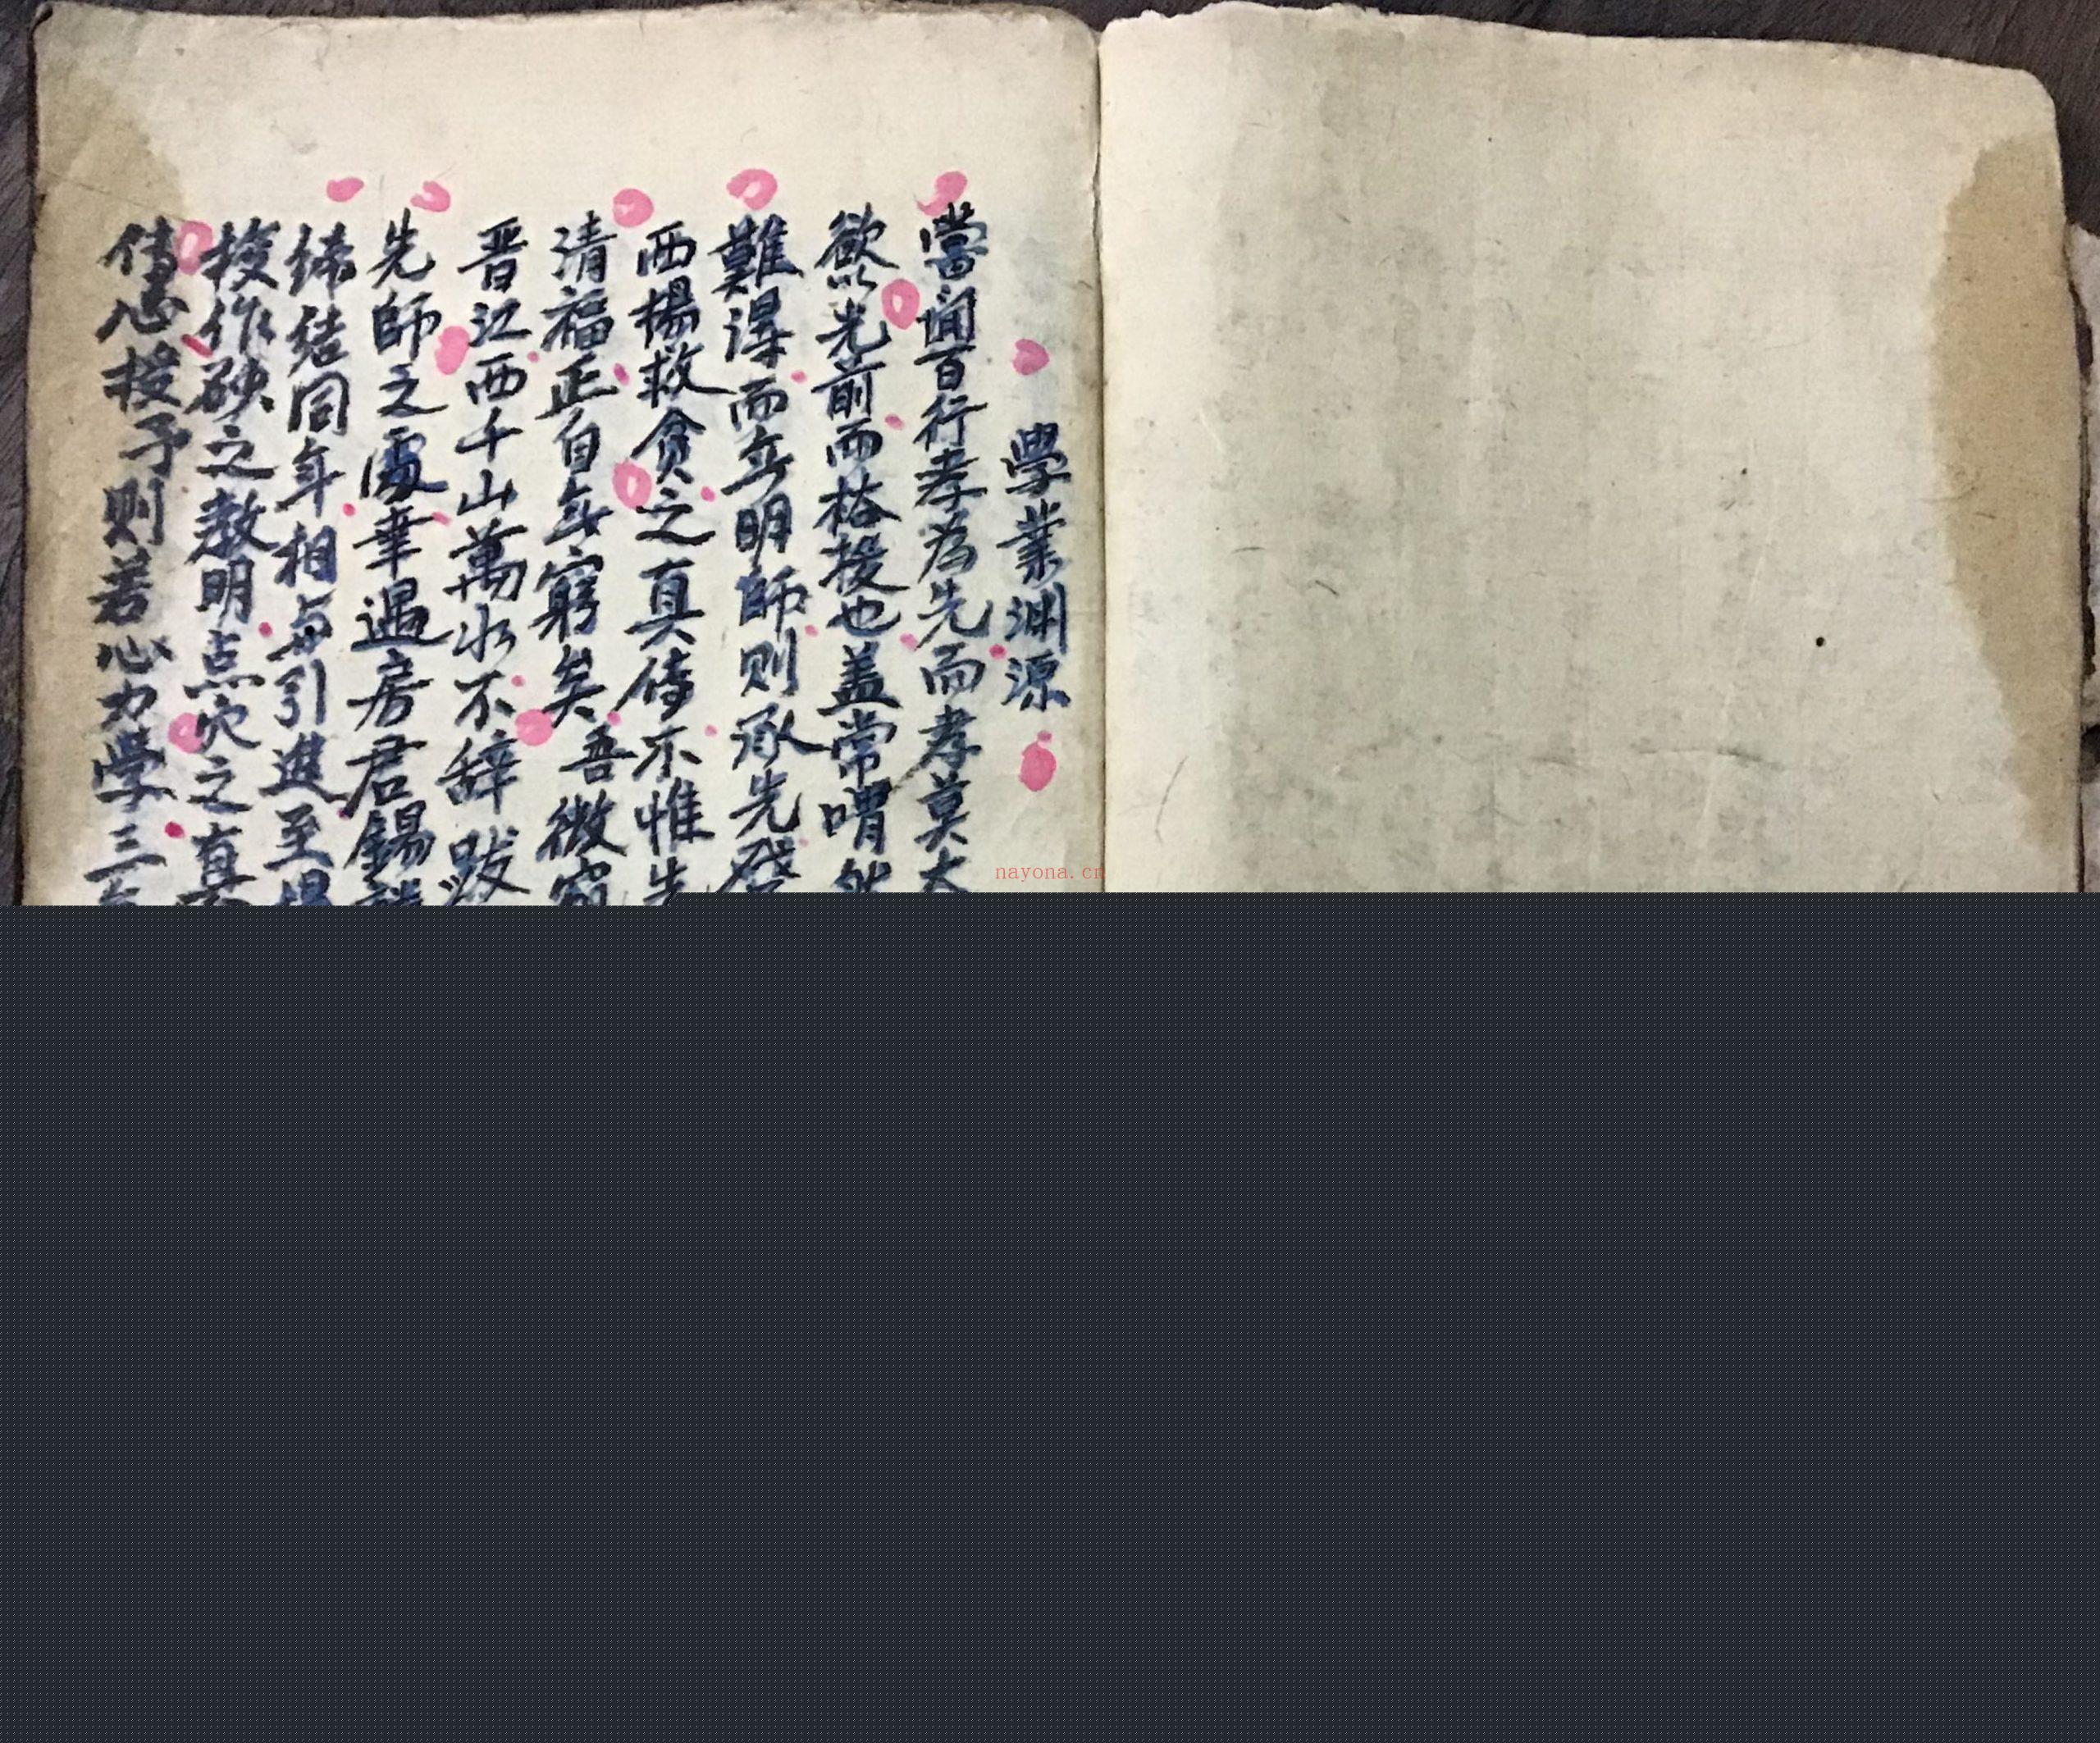 學業渊源
嘗闻百行孝為先而孝莫大
欲以光前而裕後也盖常喟然
難得而無明師则承先啓
西楊救貧之真傳不惟先
清福正自無窮矣吾微窮
晋江西千山萬水不辞跋
先師之處幸遇房君錫
締结同年相與引進至
授作砂之教明点穴之真
傳心授予则苦心力學三
nayona.cn